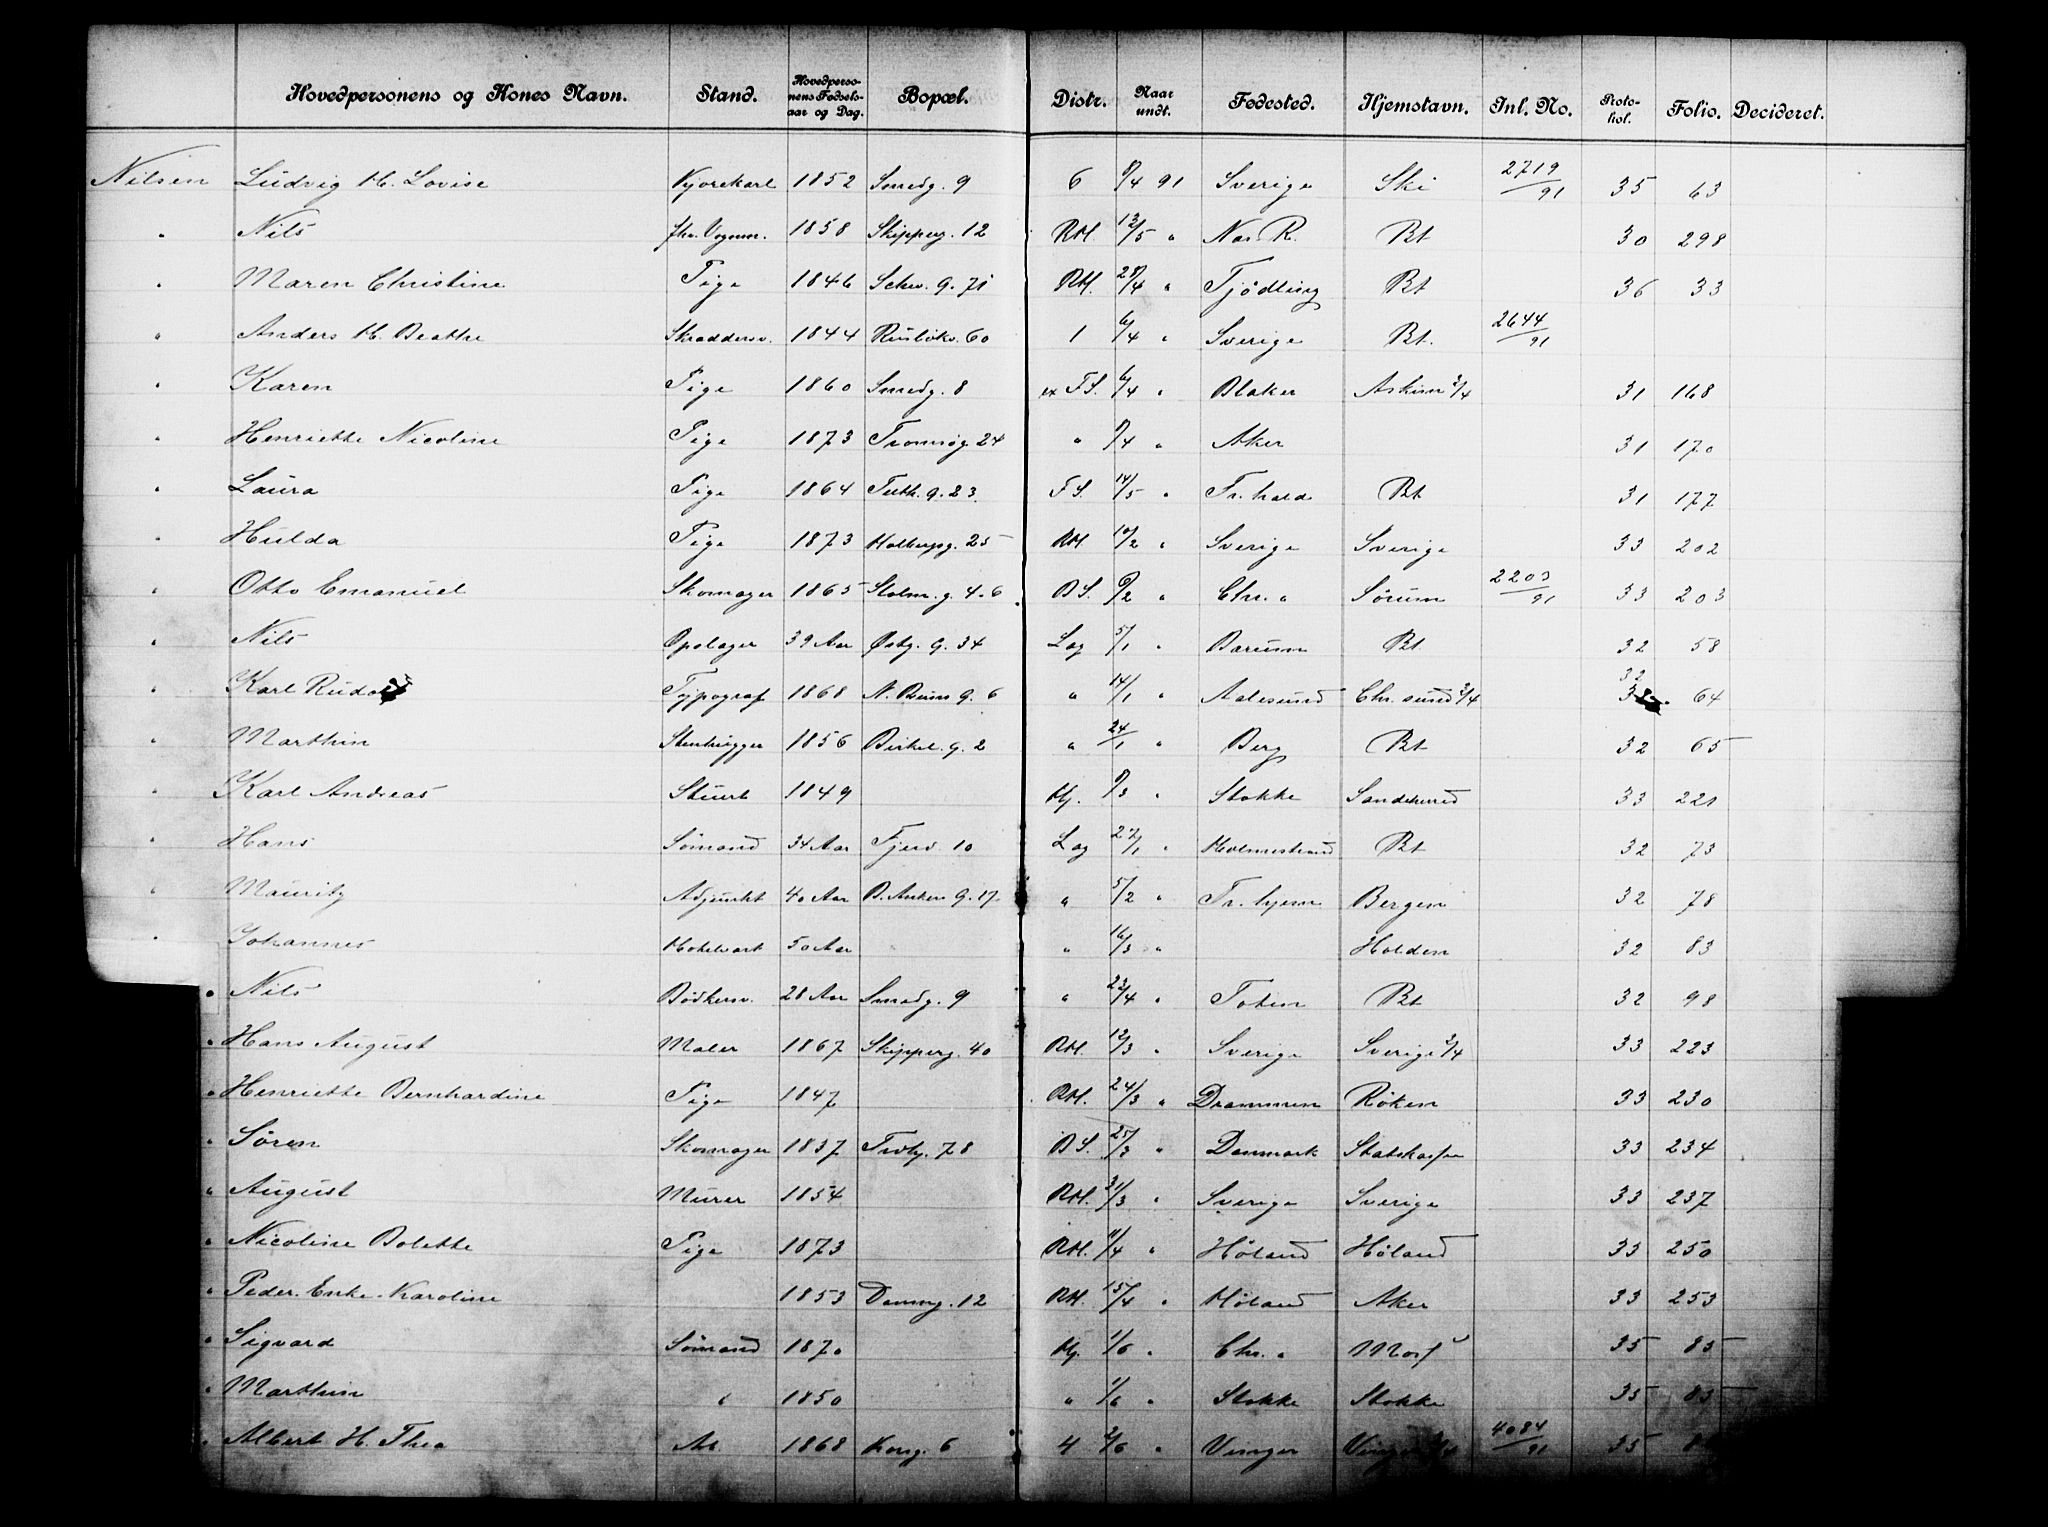 Hovedpersonens og Kones Navn. Stand. Hovedpersonens Fødselsaar og Dag. Bopæl. Distr. Naar undt. Fødested. Hjemstavn. Inl. No. Protokol. Folio. Decideret.
Nilsen Ludvig H. Lovise Kjørekarl 1852 Smedg. 9 6 8/4 91 Sverige Ski 2719/91 35 63
" Nils fhv. Vognm. 1858 Skipperg. 12 RH. 12/5 " Nas. R. Bt 30 298
" Maren Christine Pige 1846 Schw. g. 71 RH. 28/4 " Tjødling Bt 36 33
" Anders H. Beathe Skræddersv. 1844 Rusløkv. 60 1 6/4 " Sverige Bt. 2644/91
" Karen Pige 1860 Smedg. 8 ex FS. 6/4 " Blaker Askim 3/4 31 168
" Henriette Nicoline Pige 1873 Tromsøg. 24 " 8/4 " Aker 31 170
" Laura Pige 1864 Toth. g. 23. FS. 14/5 " Fr.hald Bt 31 177
" Hulda Pige 1873 Holbergsg. 25 RH 10/2 " Sverige Sverige 33 202
" Otto Emanuel Skomager 1865 Stolm. g. 4-6 BS. 9/2 " Chr. a Sørum 2203/91 33 203
" Nils Oplager 39 Aar Østg. g. 34 Lag 5/1 " Bærum Bt 32 58
" Karl Rudolf Typograf 1868 N. Brun g. 6 " 14/1 " Aalesund Chr. sund 3/4 32 64
" Marthin Stenhugger 1856 Birkel. g. 2 " 24/1 " Berg Bt 32 65
" Karl Andreas Stuert 1849 Hj. 9/3 " Stokke Sandeherred 33 221
" Hans Sømand 34 Aar Fjerd. 10 Lag 27/1 " Holmestrand Bt 32 73
" Mauritz Adjunkt 40 Aar B. Ankers g. 17 " 5/2 " Tr. hjem Bergen 32 78
" Johannes Hotelvært 50 Aar " 16/3 " Holden 32 83
" Nils Bødkersv. 28 Aar Smedg. 9 " 22/4 " Toten Bt 32 98
" Hans August Maler 1867 Skipperg. 40 RH. 12/3 " Sverige Sverige 3/4 33 223
" Henriette Bernhardine Pige 1847 RH. 24/3 " Drammen Røken 33 230
" Søren Skomager 1837 Tvetg. 78 BS. 25/3 " Danmark Statskassen 33 234
" August Murer 1854 RH. 31/3 " Sverige Sverige 33 237
" Nicoline Bolette Pige 1873 RH. 11/4 " Høland Høland 33 250
" Peder. Enke. Karoline 1853 Dammg. 12 RH. 15/4 " Høland Aker 33 253
" Sigvard Sømand 1870 Hj. 1/6 " Chr. a Moss 35 85
" Marthin " 1850 " 1/6 " Stokke Stokke 35 85
" Albert H. Thea Ar 1868 Kong. 6 4 2/6 " Vinger Vinger 3/4 4084/91 35